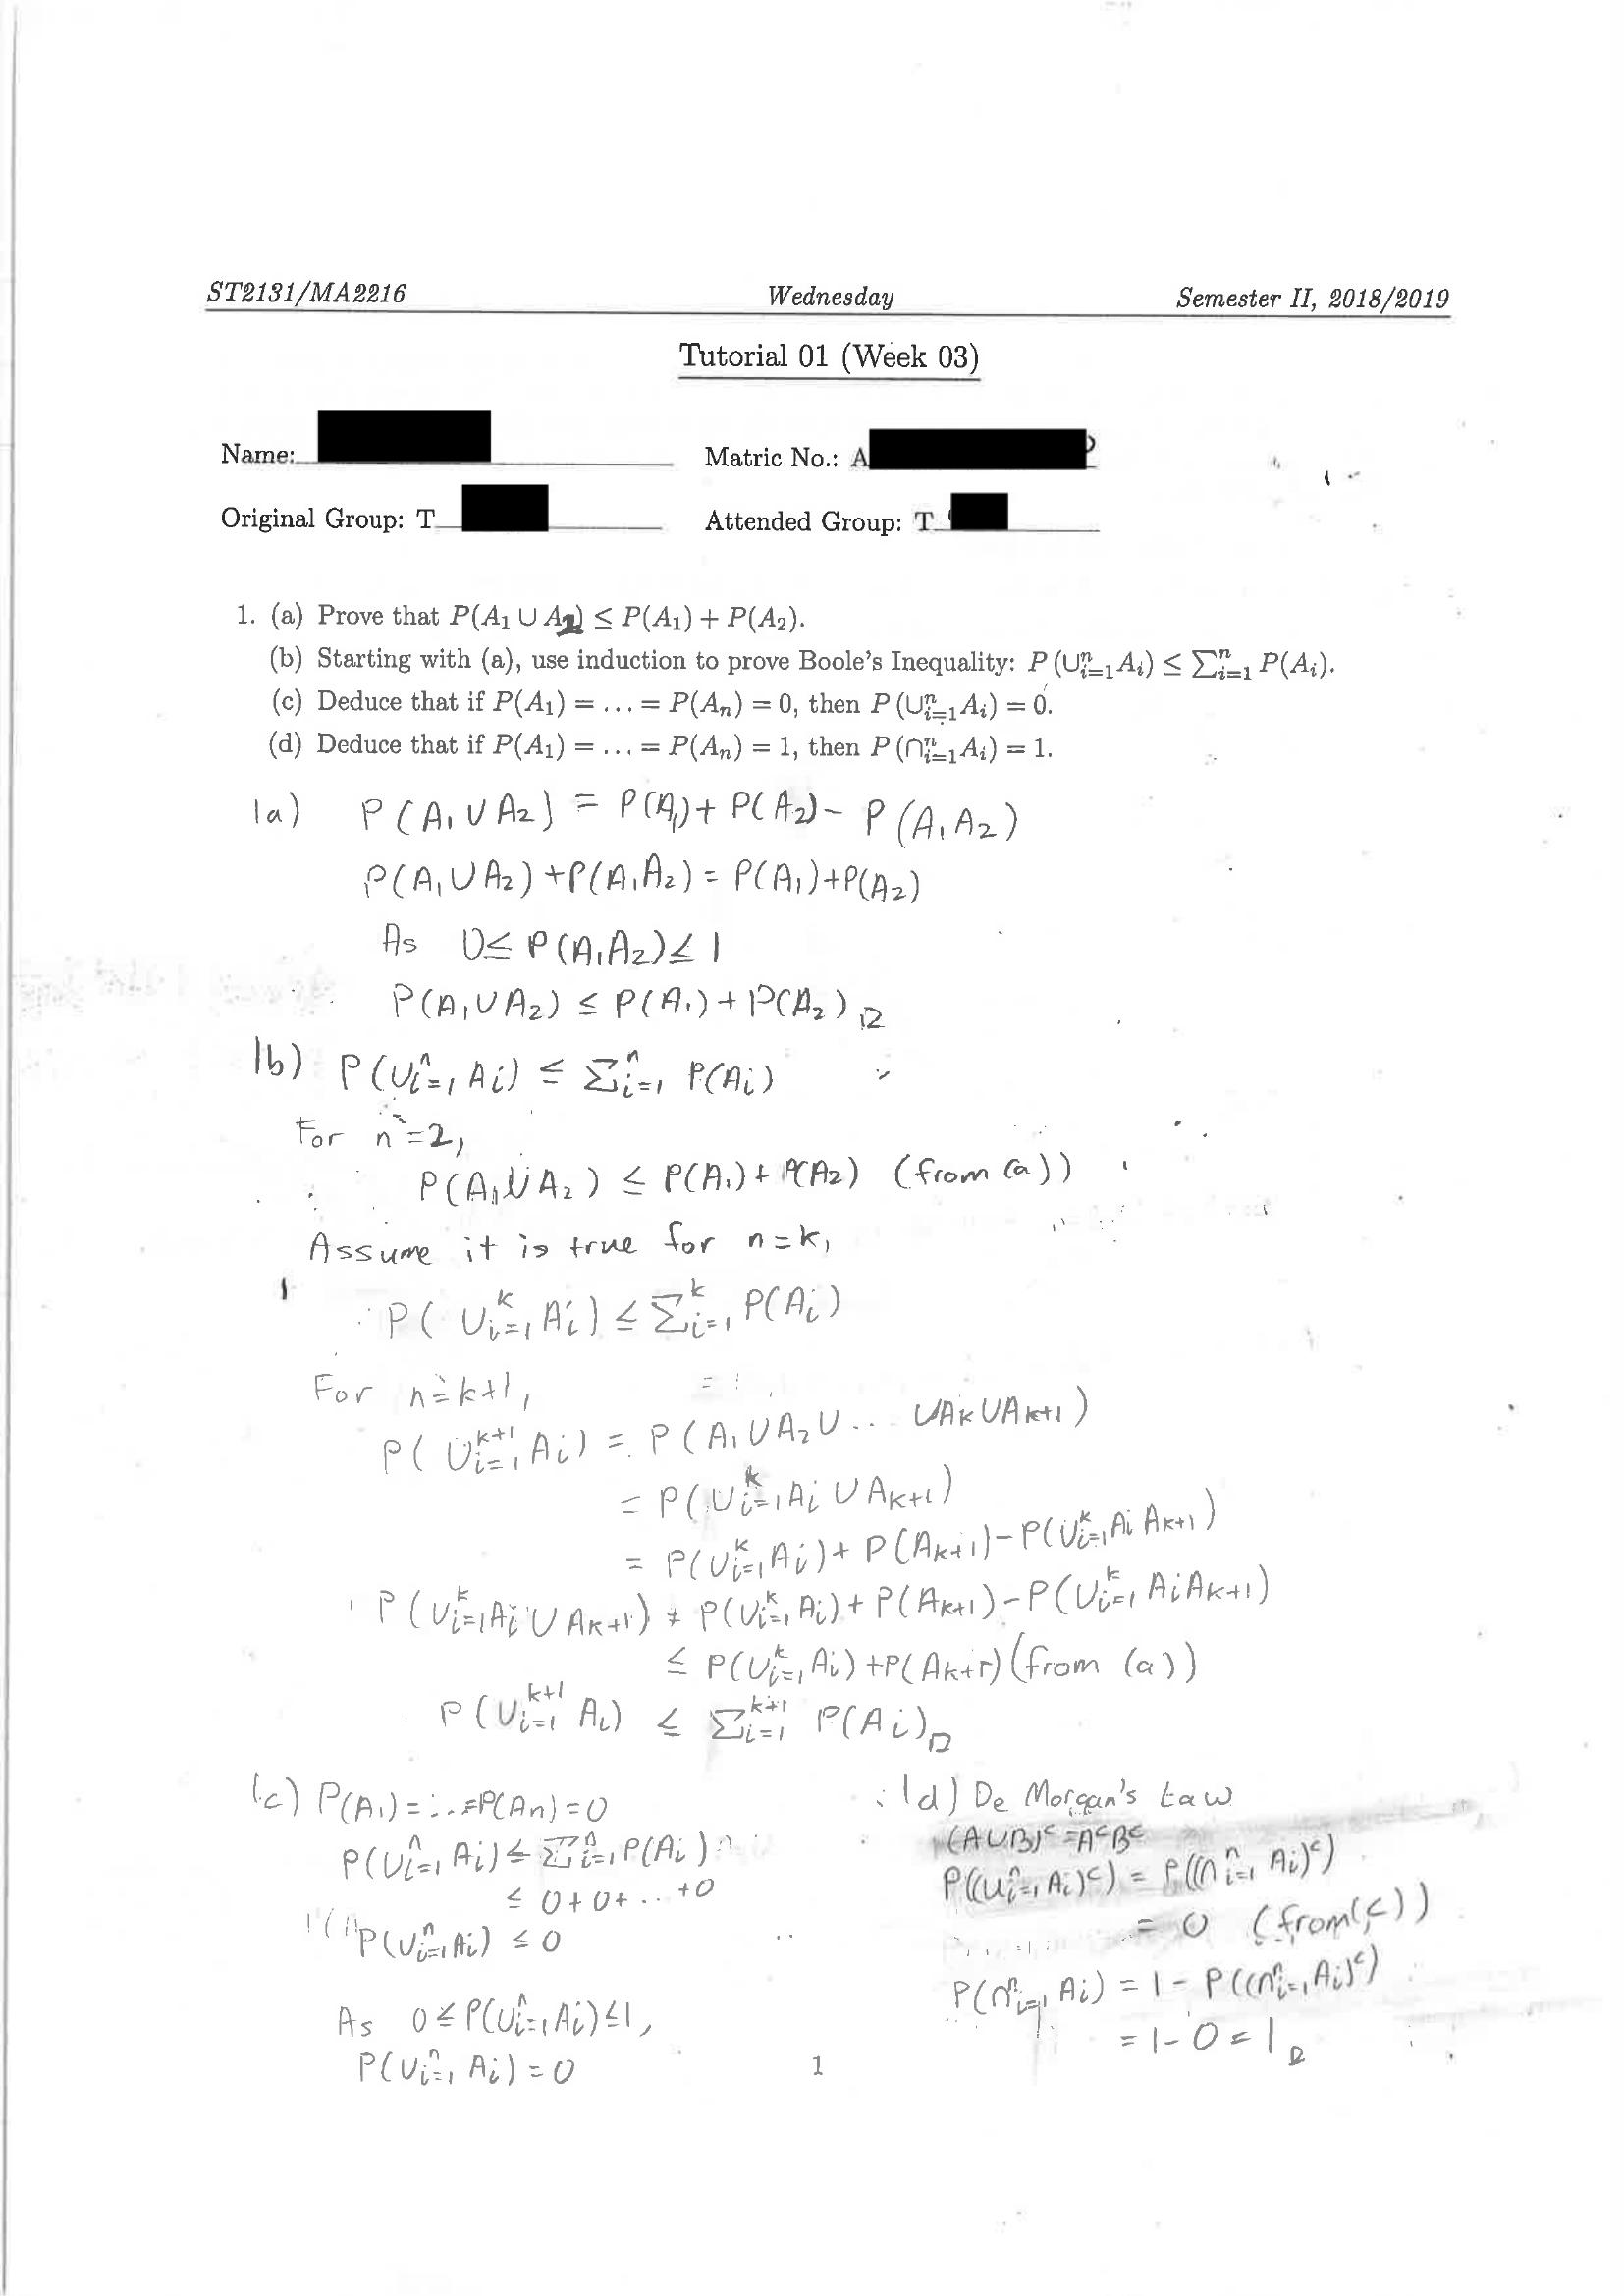 ST2131/MA2216 Wednesday Semester II, 2018/2019
Tutorial 01 (Week 03)
Name: Matric No.: A
Original Group: T Attended Group: T
1. (a) Prove that P(A₁ ∪ A₂) ≤ P(A₁) + P(A₂).
(b) Starting with (a), use induction to prove Boole's Inequality: P (∪ⁿᵢ₌₁Aᵢ) ≤ ∑ⁿᵢ₌₁ P(Aᵢ).
(c) Deduce that if P(A₁) = ... = P(Aₙ) = 0, then P (∪ⁿᵢ₌₁Aᵢ) = 0.
(d) Deduce that if P(A₁) = ... = P(Aₙ) = 1, then P (∩ⁿᵢ₌₁Aᵢ) = 1.
1a) P(A₁ ∪ A₂) = P(A₁) + P(A₂) - P(A₁A₂)
P(A₁ ∪ A₂) + P(A₁A₂) = P(A₁) + P(A₂)
As 0 ≤ P(A₁A₂) ≤ 1
P(A₁ ∪ A₂) ≤ P(A₁) + P(A₂) □
1b) P(∪ⁿᵢ₌₁ Aᵢ) ≤ ∑ⁿᵢ₌₁ P(Aᵢ)
For n = 2,
P(A₁ ∪ A₂) ≤ P(A₁) + P(A₂) (from (a))
Assume it is true for n = k,
P(∪ᵏᵢ₌₁ Aᵢ) ≤ ∑ᵏᵢ₌₁ P(Aᵢ)
For n = k+1,
P(∪ᵏ⁺¹ᵢ₌₁ Aᵢ) = P(A₁ ∪ A₂ ∪ ... ∪ Aₖ ∪ Aₖ₊₁)
= P(∪ᵏᵢ₌₁ Aᵢ ∪ Aₖ₊₁)
= P(∪ᵏᵢ₌₁ Aᵢ) + P(Aₖ₊₁) - P(∪ᵏᵢ₌₁ Aᵢ Aₖ₊₁)
P(∪ᵏᵢ₌₁ Aᵢ ∪ Aₖ₊₁) = P(∪ᵏᵢ₌₁ Aᵢ) + P(Aₖ₊₁) - P(∪ᵏᵢ₌₁ Aᵢ Aₖ₊₁)
≤ P(∪ᵏᵢ₌₁ Aᵢ) + P(Aₖ₊₁) (from (a))
P(∪ᵏ⁺¹ᵢ₌₁ Aᵢ) ≤ ∑ᵏ⁺¹ᵢ₌₁ P(Aᵢ) □
1c) P(A₁) = ... = P(Aₙ) = 0
P(∪ⁿᵢ₌₁ Aᵢ) ≤ ∑ⁿᵢ₌₁ P(Aᵢ)
≤ 0 + 0 + ... + 0
P(∪ⁿᵢ₌₁ Aᵢ) ≤ 0
As 0 ≤ P(∪ⁿᵢ₌₁ Aᵢ) ≤ 1,
P(∪ⁿᵢ₌₁ Aᵢ) = 0
1d) De Morgan's Law
(A ∪ B)ᶜ = AᶜBᶜ
P((∪ⁿᵢ₌₁ Aᵢ)ᶜ) = P((∩ⁿᵢ₌₁ Aᵢ)ᶜ)
= 0 (from (c))
P(∩ⁿᵢ₌₁ Aᵢ) = 1 - P((∩ⁿᵢ₌₁ Aᵢ)ᶜ)
= 1 - 0 = 1 □
1